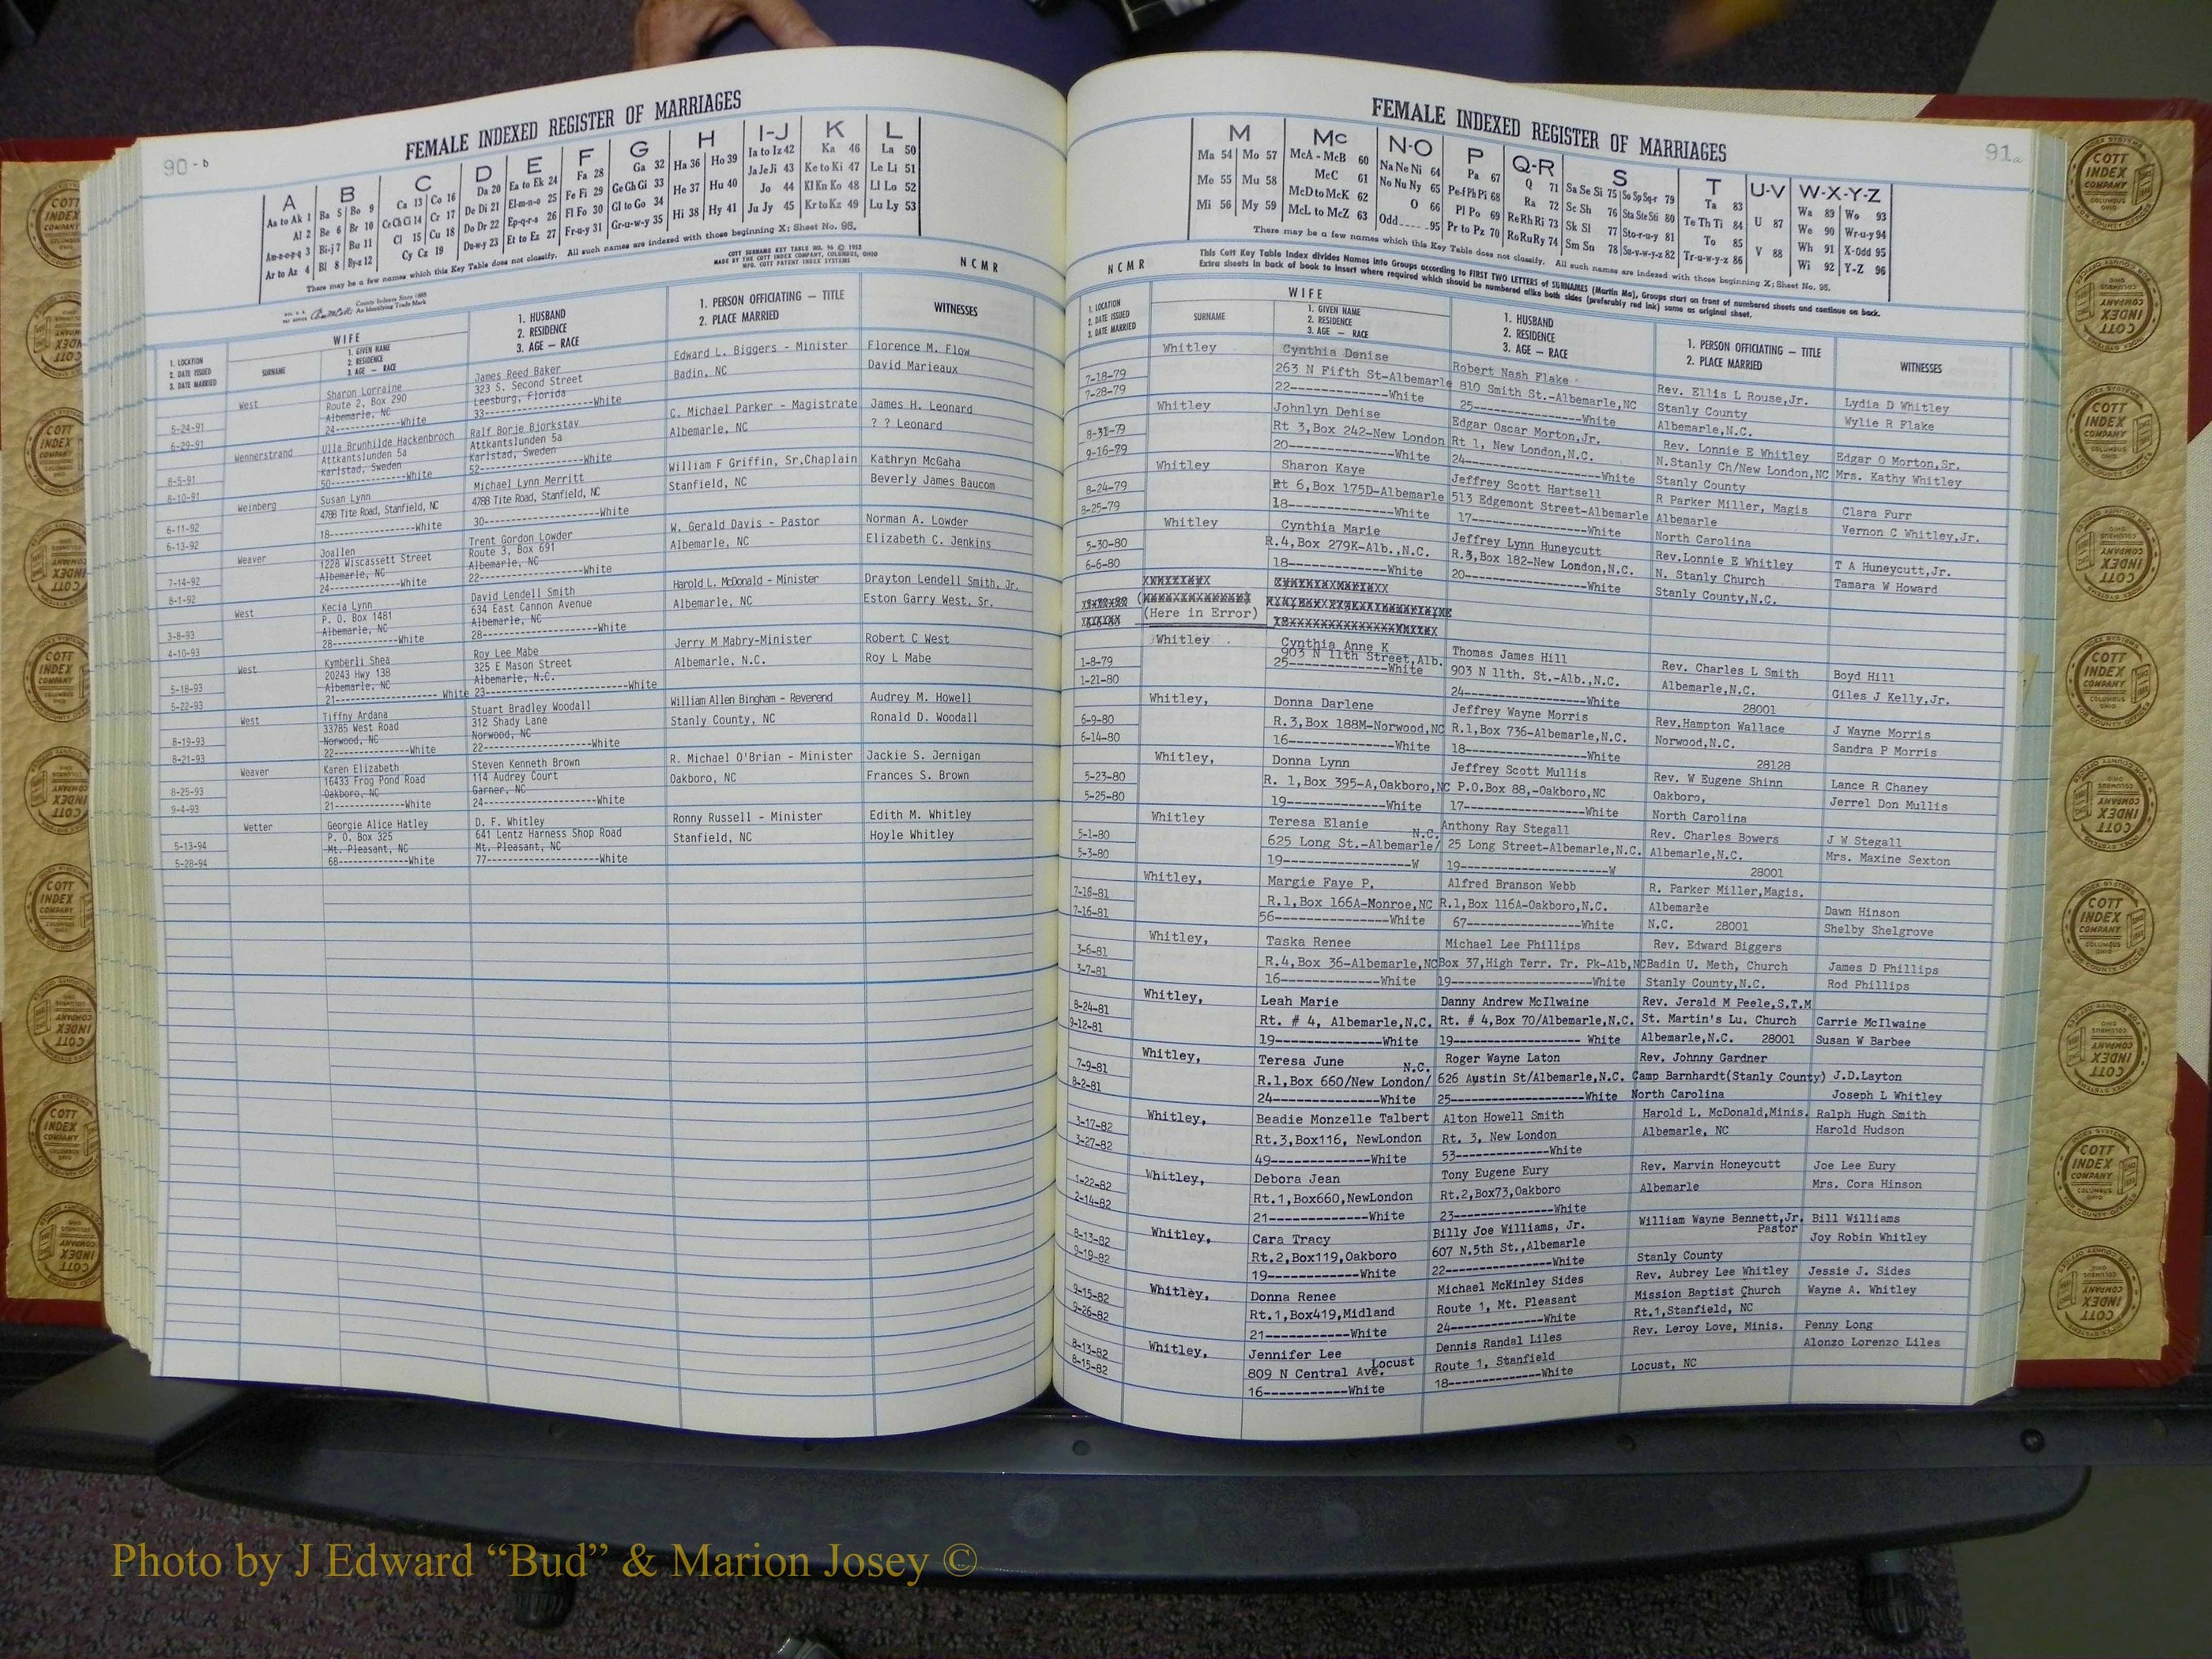 90-b
FEMALE INDEXED REGISTER OF MARRIAGES
A B C D E F G H I-J K L
Aa to Ak 1 Ba 5 Bo 9 Ca 13 Co 16 Da 20 Ea to Ek 24 Fa 28 Ga 32 Ha 36 Ho 39 Ia to Iz 42 Ka 46 La 50
Al 2 Be 6 Br 10 Ce Ch Ci 14 Cr 17 De Di 21 El-m-n-o 25 Fe Fi 29 Ge Gh Gi 33 He 37 Hu 40 Ja Je Ji 43 Ke to Ki 47 Le Li 51
Am-n-o-p-q 3 Bi-j 7 Bu 11 Cl 15 Cu 18 Do Dr 22 Ep-q-r-s 26 Fl Fo 30 Gl to Go 34 Hi 38 Hy 41 Jo 44 Kl Kn Ko 48 Ll Lo 52
Ar to Az 4 Bl 8 By-z 12 Cy Cz 19 Du-w-y 23 Et to Ez 27 Fr-u-y 31 Gr-u-w-y 35 Ju Jy 45 Kr to Kz 49 Lu Ly 53
There may be a few names which this Key Table does not classify. All such names are indexed with those beginning X; Sheet No. 95.
County Indexes Since 1888
An Identifying Trade Mark
COTT SURNAME KEY TABLE NO. 96 © 1952
MADE BY THE COTT INDEX COMPANY, COLUMBUS, OHIO
MFG. COTT PATENT INDEX SYSTEMS
NCMR
1. LOCATION 2. DATE ISSUED 3. DATE MARRIED
WIFE
SURNAME
1. GIVEN NAME 2. RESIDENCE 3. AGE — RACE
1. HUSBAND 2. RESIDENCE 3. AGE — RACE
1. PERSON OFFICIATING — TITLE 2. PLACE MARRIED
WITNESSES
West Sharon Lorraine James Reed Baker Edward L. Biggers - Minister Florence M. Flow
Route 2, Box 290 323 S. Second Street Badin, NC David Marieaux
5-24-91 Albemarle, NC Leesburg, Florida
6-29-91 24---White 33---White
Wennerstrand Ulla Brunhilde Hackenbroch Ralf Borje Bjorkstav C. Michael Parker - Magistrate James H. Leonard
Attkantslunden 5a Attkantslunden 5a Albemarle, NC ? ? Leonard
8-5-91 Karlstad, Sweden Karlstad, Sweden
8-10-91 50---White 52---White
Weinberg Susan Lynn Michael Lynn Merritt William F Griffin, Sr,Chaplain Kathryn McGaha
4788 Tite Road, Stanfield, NC 4788 Tite Road, Stanfield, NC Stanfield, NC Beverly James Baucom
6-11-92
6-13-92 18---White 30---White
Weaver Joallen Trent Gordon Lowder W. Gerald Davis - Pastor Norman A. Lowder
1228 Wiscassett Street Route 3, Box 691 Albemarle, NC Elizabeth C. Jenkins
7-14-92 Albemarle, NC Albemarle, NC
8-1-92 24---White 22---White
West Kecia Lynn David Lendell Smith Harold L. McDonald - Minister Drayton Lendell Smith, Jr.
P. O. Box 1481 634 East Cannon Avenue Albemarle, NC Eston Garry West, Sr.
3-8-93 Albemarle, NC Albemarle, NC
4-10-93 28---White 28---White
West Kymberli Shea Roy Lee Mabe Jerry M Mabry-Minister Robert C West
20243 Hwy 138 325 E Mason Street Albemarle, N.C. Roy L Mabe
5-18-93 Albemarle, NC Albemarle, N.C.
5-22-93 21---White 23---White
West Tiffny Ardana Stuart Bradley Woodall William Allen Bingham - Reverend Audrey M. Howell
33785 West Road 312 Shady Lane Stanly County, NC Ronald D. Woodall
8-19-93 Norwood, NC Norwood, NC
8-21-93 22---White 22---White
Weaver Karen Elizabeth Steven Kenneth Brown R. Michael O'Brian - Minister Jackie S. Jernigan
16433 Frog Pond Road 114 Audrey Court Oakboro, NC Frances S. Brown
8-25-93 Oakboro, NC Garner, NC
9-4-93 21---White 24---White
Wetter Georgie Alice Hatley D. F. Whitley Ronny Russell - Minister Edith M. Whitley
P. O. Box 325 641 Lentz Harness Shop Road Stanfield, NC Hoyle Whitley
5-13-94 Mt. Pleasant, NC Mt. Pleasant, NC
5-28-94 68---White 77---White
91a
FEMALE INDEXED REGISTER OF MARRIAGES
M Mc N-O P Q-R S T U-V W-X-Y-Z
Ma 54 Mo 57 McA - McB 60 Na Ne Ni 64 Pa 67 Q 71 Sa Se Si 75 So Sp Sq-r 79 Ta 83 U 87 Wa 89 Wo 93
Me 55 Mu 58 McC 61 No Nu Ny 65 Pe-f Ph Pi 68 Ra 72 Sc Sh 76 Sta Ste Sti 80 Te Th Ti 84 V 88 We 90 Wr-u-y 94
Mi 56 My 59 McD to McK 62 O 66 Pl Po 69 Re Rh Ri 73 Sk Sl 77 Sto-r-u-y 81 To 85 Wh 91 X-Odd 95
McL to McZ 63 Odd 95 Pr to Pz 70 Ro Ru Ry 74 Sm Sn 78 Su-v-w-y-z 82 Tr-u-w-y-z 86 Wi 92 Y-Z 96
There may be a few names which this Key Table does not classify. All such names are indexed with those beginning X; Sheet No. 95.
This Cott Key Table Index divides Names into Groups according to FIRST TWO LETTERS of SURNAMES (Martin Ma), Groups start on front of numbered sheets and continue on back.
Extra sheets in back of book to insert where required which should be numbered alike both sides (preferably red ink) same as original sheet.
NCMR
1. LOCATION 2. DATE ISSUED 3. DATE MARRIED
WIFE
SURNAME
1. GIVEN NAME 2. RESIDENCE 3. AGE — RACE
1. HUSBAND 2. RESIDENCE 3. AGE — RACE
1. PERSON OFFICIATING — TITLE 2. PLACE MARRIED
WITNESSES
Whitley Cynthia Denise Robert Nash Flake Rev. Ellis L Rouse,Jr. Lydia D Whitley
7-18-79 263 N Fifth St-Albemarle 810 Smith St.-Albemarle,NC Stanly County Wylie R Flake
7-28-79 22---White 25---White Albemarle,N.C.
Whitley Johnlyn Denise Edgar Oscar Morton,Jr. Rev. Lonnie E Whitley Edgar O Morton,Sr.
8-31-79 Rt 3,Box 242-New London Rt 1, New London,N.C. N.Stanly Ch/New London,NC Mrs. Kathy Whitley
9-16-79 20---White 24---White Stanly County
Whitley Sharon Kaye Jeffrey Scott Hartsell R Parker Miller, Magis Clara Furr
8-24-79 Rt 6,Box 175D-Albemarle 513 Edgemont Street-Albemarle Albemarle Vernon C Whitley,Jr.
8-25-79 18---White 17---White North Carolina
Whitley Cynthia Marie Jeffrey Lynn Huneycutt Rev.Lonnie E Whitley T A Huneycutt,Jr.
5-30-80 R.4,Box 279K-Alb.,N.C. R.3,Box 182-New London,N.C. N. Stanly Church Tamara W Howard
6-6-80 18---White 20---White Stanly County,N.C.
(Here in Error)
Whitley Cynthia Anne K Thomas James Hill Rev. Charles L Smith Boyd Hill
1-8-79 903 N 11th Street,Alb. 903 N 11th. St.-Alb.,N.C. Albemarle,N.C. Giles J Kelly,Jr.
1-21-80 25---White 24---White 28001
Whitley, Donna Darlene Jeffrey Wayne Morris Rev.Hampton Wallace J Wayne Morris
6-9-80 R.3,Box 188M-Norwood,NC R.1,Box 736-Albemarle,N.C. Norwood,N.C. Sandra P Morris
6-14-80 16---White 18---White 28128
Whitley, Donna Lynn Jeffrey Scott Mullis Rev. W Eugene Shinn Lance R Chaney
5-23-80 R. 1,Box 395-A,Oakboro,NC P.O.Box 88,-Oakboro,NC Oakboro, Jerrel Don Mullis
5-25-80 19---White 17---White North Carolina
Whitley Teresa Elanie Anthony Ray Stegall Rev. Charles Bowers J W Stegall
5-1-80 625 Long St.-Albemarle/N.C. 25 Long Street-Albemarle,N.C. Albemarle,N.C. Mrs. Maxine Sexton
5-3-80 19---W 19---W 28001
Whitley, Margie Faye P. Alfred Branson Webb R. Parker Miller,Magis. Dawn Hinson
7-16-81 R.1,Box 166A-Monroe,NC R.1,Box 116A-Oakboro,N.C. Albemarle Shelby Shelgrove
7-16-81 56---White 67---White N.C. 28001
Whitley, Taska Renee Michael Lee Phillips Rev. Edward Biggers James D Phillips
3-6-81 R.4,Box 36-Albemarle,NC Box 37,High Terr. Tr. Pk-Alb,NC Badin U. Meth, Church Rod Phillips
3-7-81 16---White 19---White Stanly County,N.C.
Whitley, Leah Marie Danny Andrew McIlwaine Rev. Jerald M Peele,S.T.M
8-24-81 Rt. # 4, Albemarle,N.C. Rt. # 4,Box 70/Albemarle,N.C. St. Martin's Lu. Church Carrie McIlwaine
9-12-81 19---White 19---White Albemarle,N.C. 28001 Susan W Barbee
Whitley, Teresa June Roger Wayne Laton Rev. Johnny Gardner
7-9-81 R.1,Box 660/New London/N.C. 626 Austin St/Albemarle,N.C. Camp Barnhardt(Stanly County) J.D.Layton
8-2-81 24---White 25---White North Carolina Joseph L Whitley
Whitley, Beadie Monzelle Talbert Alton Howell Smith Harold L. McDonald,Minis. Ralph Hugh Smith
3-17-82 Rt.3,Box116, NewLondon Rt. 3, New London Albemarle, NC Harold Hudson
3-27-82 49---White 53---White
Whitley, Debora Jean Tony Eugene Eury Rev. Marvin Honeycutt Joe Lee Eury
1-22-82 Rt.1,Box660,NewLondon Rt.2,Box73,Oakboro Albemarle Mrs. Cora Hinson
2-14-82 21---White 23---White
Whitley, Cara Tracy Billy Joe Williams, Jr. William Wayne Bennett,Jr. Pastor Bill Williams
8-13-82 Rt.2,Box119,Oakboro 607 N.5th St.,Albemarle Joy Robin Whitley
9-19-82 19---White 22---White Stanly County
Whitley, Donna Renee Michael McKinley Sides Rev. Aubrey Lee Whitley Jessie J. Sides
9-15-82 Rt.1,Box419,Midland Route 1, Mt. Pleasant Mission Baptist Church Wayne A. Whitley
9-26-82 21---White 24---White Rt.1,Stanfield, NC
Whitley, Jennifer Lee Dennis Randal Liles Rev. Leroy Love, Minis. Penny Long
8-13-82 809 N Central Ave. Locust Route 1, Stanfield Alonzo Lorenzo Liles
8-15-82 16---White 18---White Locust, NC
COTT INDEX COMPANY COLUMBUS OHIO
Photo by J Edward “Bud” & Marion Josey ©